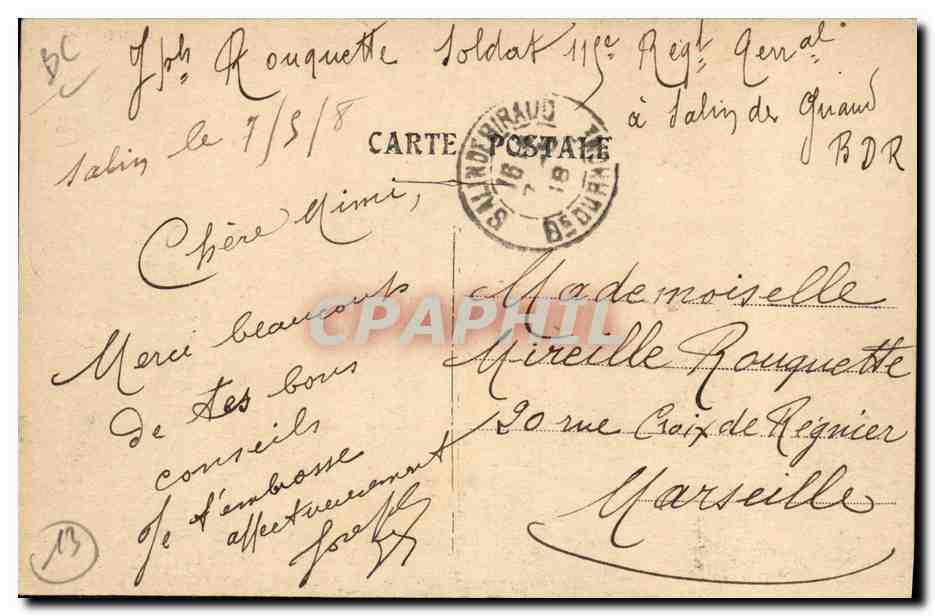 BC
Jph Rouquette Soldat 115e Régt Terral
à Salin de Giraud
BDR
Salin le 7/5/8
CARTE POSTALE
SALIN DE GIRAUD
16
7
18
Bs DU RHONE
Chère Mimi,
Merci beaucoup
de tes bons
conseils
Je t'embrasse
affectueusement
Joseph
Mademoiselle
Mireille Rouquette
20 rue Croix de Régnier
Marseille
CPAPHIL
13